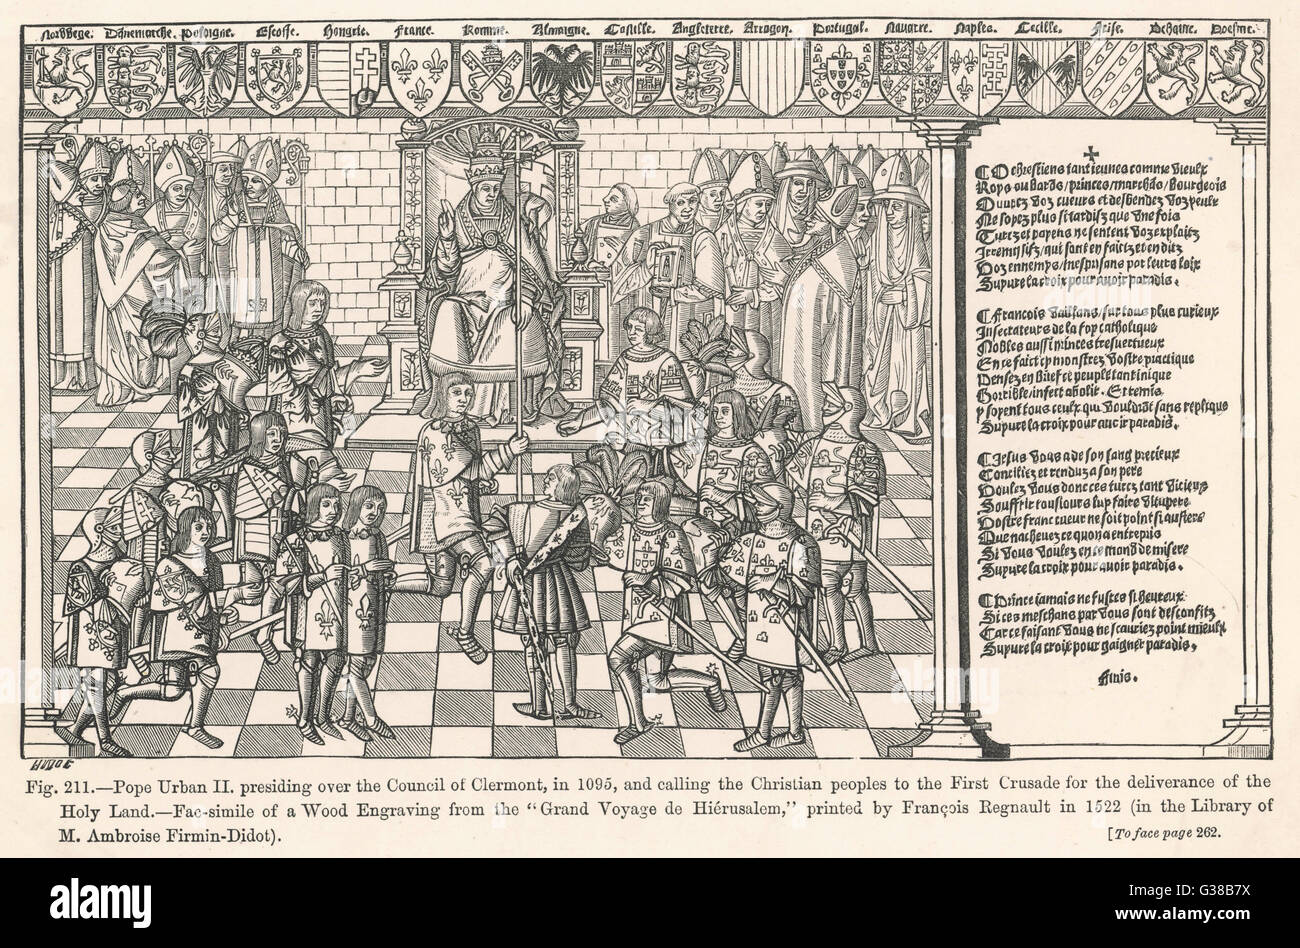 Norwege. Dānemarche. Poloigne. Escosse. Hongrie. France. Romme. Almaigne. Castille. Angleterre. Arragon. Portugal. Nauarre. Naples. Cecille. Frise. Boesme.
O chrestiens tant ieunes comme vieulx
Roys ou Ducs / princes / marchās / bourgeois
Ouurez voz cueurs et desbendez voz yeulx
Ne soyez plus si tardifz que vne fois
Turcz et payens ne sentent voz exploitz
Irremissifz / qui sont en faictz et en ditz
Voz ennemys / mesprisans por leurs loix
Supure la croix pour auoir paradis.
Francois vaillans / sur tous plus curieux
de la foy catholique
Nobles aussi princes tresvertueux
En ce faict cy monstrez vostre practique
Pensez en brief ce peuple
Horrible / infect abolir. Et
y soyent tous ceulx qui vouldrōt sans replique
Supure la croix pour auoir paradis.
Jesus vous a de son sang precieux
et rendu a son pere
Voulez vous donc ces turcz tant vicieux
Souffrir tousiours luy faire vitupere
Vostre franc cueur ne soit point si
Que nacheuez ce quon a entrepris
Si vous voulez en ce mond de misere
Supure la croix pour auoir paradis.
Prince iamais ne fustes si heureux
Si ces meschans par vous sont desconfitz
Car ce faisant vous ne scauriez point mieulx
Supure la croix pour gaigner paradis.
Finis.
Fig. 211.—Pope Urban II. presiding over the Council of Clermont, in 1095, and calling the Christian peoples to the First Crusade for the deliverance of the
Holy Land.—Fac-simile of a Wood Engraving from the "Grand Voyage de Hiérusalem," printed by François Regnault in 1522 (in the Library of
M. Ambroise Firmin-Didot).
[To face page 262.
alamy stock photo
G38B7X
www.alamy.com